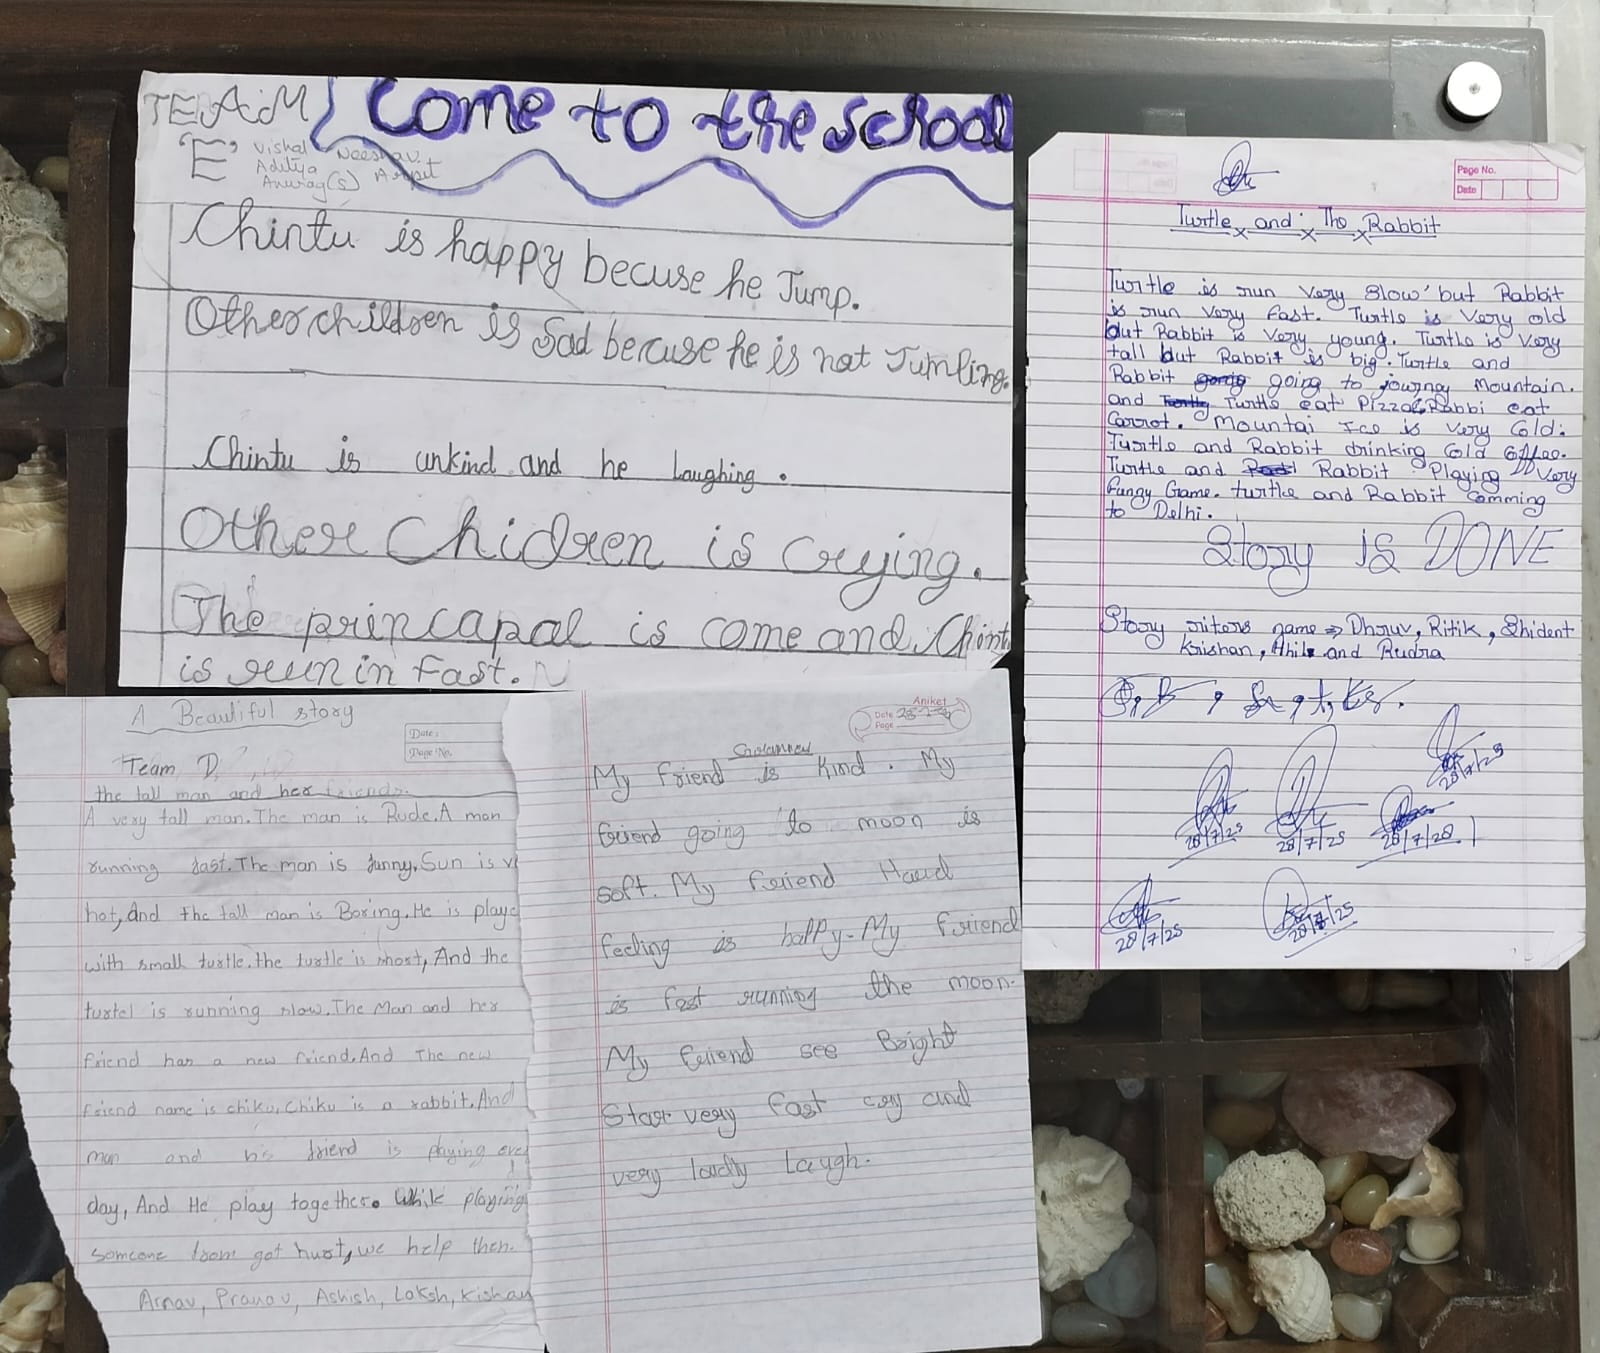 TEAM
'E'
Vishal Neeshav.
Aditya
Anurag(s) Arpit
Come to the School
Chintu is happy becuse he Jump.
Other children is Sad becuse he is not Jumling.
Chintu is unkind and he Laughing.
Other Chidren is Crying.
The princapal is come and Chint
is reun in fast.
Page No.
Date
Turtle and The Rabbit
Turtle is run Very Slow but Rabbit
is run Very Fast. Turtle is Very old
but Rabbit is Very young. Turtle is Very
tall but Rabbit is big. Turtle and
Rabbit going to journey Mountain.
and Turtle eat Pizza Rabbi eat
Carrot. Mountai Ice is Very Cold.
Turtle and Rabbit drinking Cold Coffee.
Turtle and Rabbit Playing Very
Fungy Game. turtle and Rabbit Comming
to Delhi.
Story IS DONE
Story riters name ⇒ Dhruv, Ritik, Shident
Krishan, and Rudra
28/7/25
28/7/25
28/7/25
28/7/28
28/7/25
28/7/25
A Beautiful story
Date:
Page No.
Team D
the tall man and her friends.
A very tall man. The man is Rude. A man
running fast. The man is funny, Sun is v
hot, And the tall man is Boring. He is playe
with small turtle. the turtle is short, And the
turtel is running slow. The Man and her
friend has a new friend. And The new
friend name is chiku, Chiku is a rabbit. And
man and his friend is playing eve
day, And He play together. While playing
someone from got hurt, we help then.
Arnav, Pranav, Ashish, Laksh, Kishan
Aniket
Date
Page
My friend is kind. My
friend going to moon is
soft. My friend Hard
feeling is happy. My friend
is fast running the moon.
My friend see Bright
Star very fast cry and
very loudly Laugh.